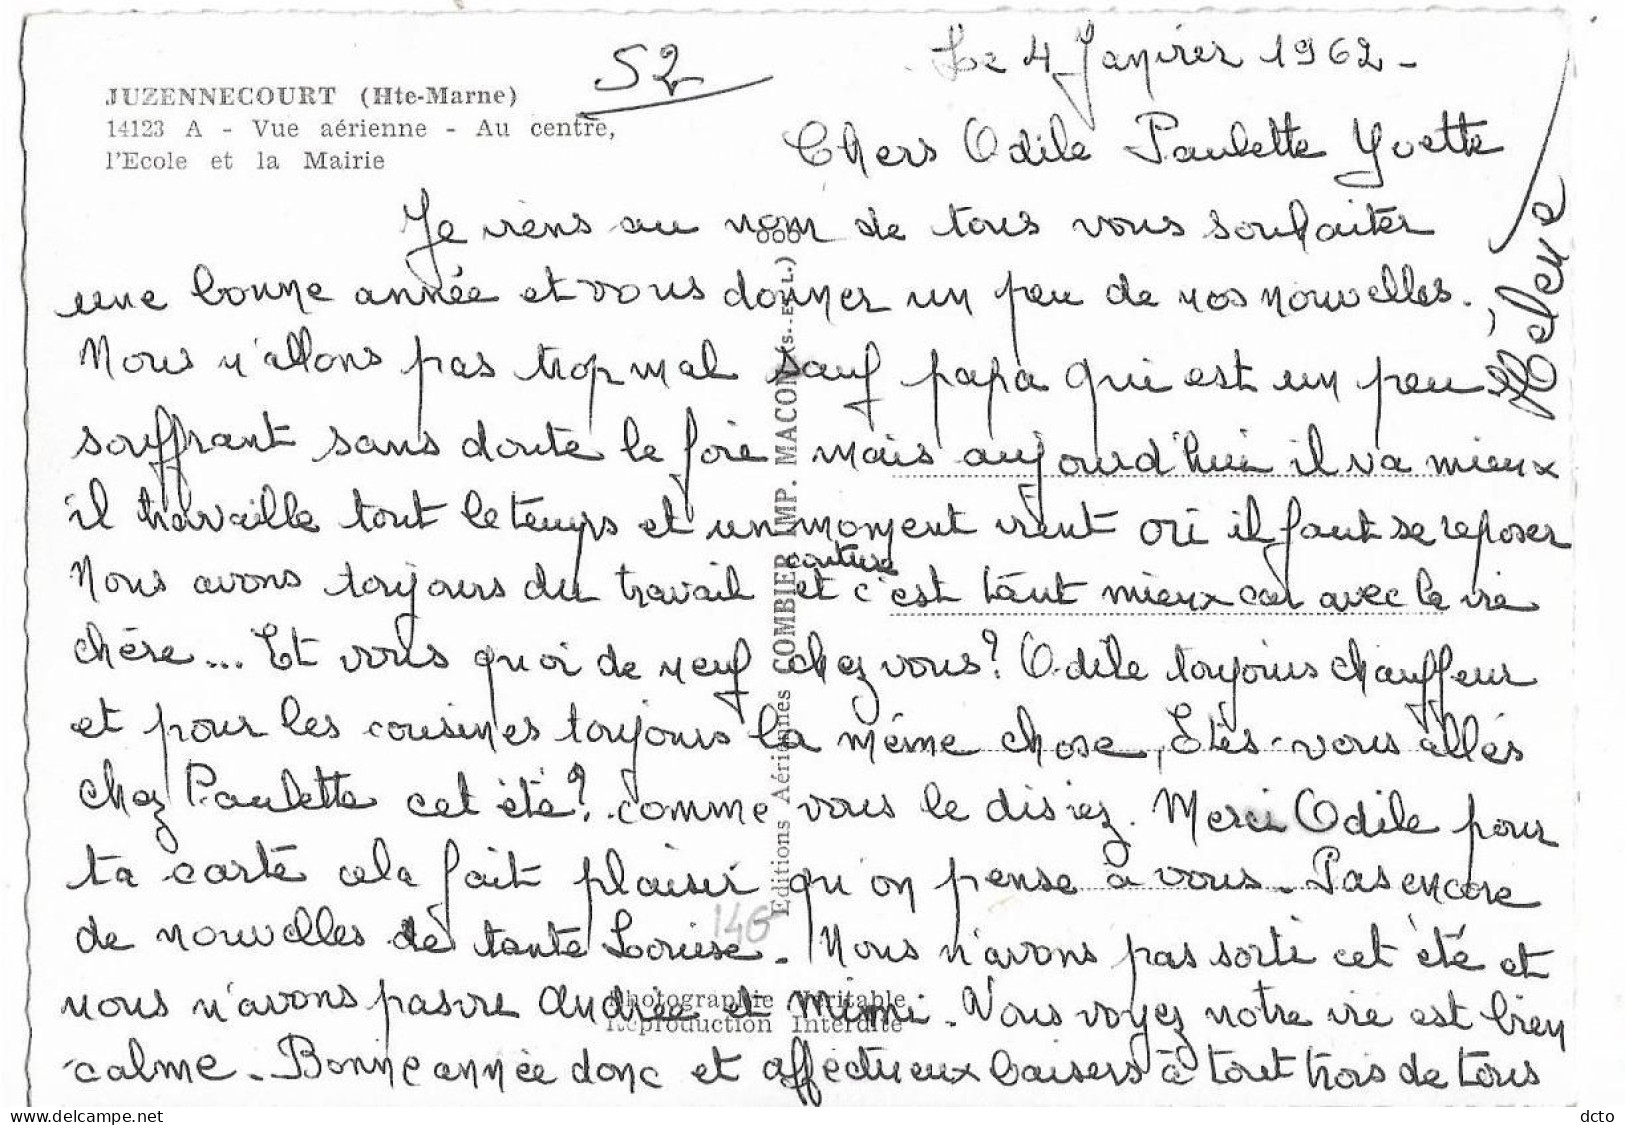 JUZENNECOURT (Hte-Marne)
14123 A - Vue aérienne - Au centre,
l'Ecole et la Mairie
52
Le 4 Janvier 1962 -
Chers Odile Paulette Yvette
Je viens au nom de tous vous souhaiter
une bonne année et vous donner un peu de nos nouvelles.
Nous n'allons pas trop mal sauf papa qui est un peu
souffrant sans doute le foie mais aujourd'hui il va mieux
il travaille tout le temps et un moment vient où il faut se reposer
couture
Nous avons toujours du travail et c'est tant mieux car avec la vie
chère... Et vous quoi de neuf chez vous? Odile toujours chauffeur
et pour les cousines toujours la même chose, Etes-vous allés
chez Paulette cet été? comme vous le disiez. Merci Odile pour
ta carte cela fait plaisir qu'on pense à vous. Pas encore
de nouvelles de tante Louise. Nous n'avons pas sorti cet été et
nous n'avons pas vu Andrée et Mimi. Vous voyez notre vie est bien
calme. Bonne année donc et affectueux baisers à tout trois de tous
Hélène
146
Editions Aériennes COMBIER IMP. MACON (S..E..L.)
Photographie Véritable
Reproduction Interdite
delcampe.net
dcto